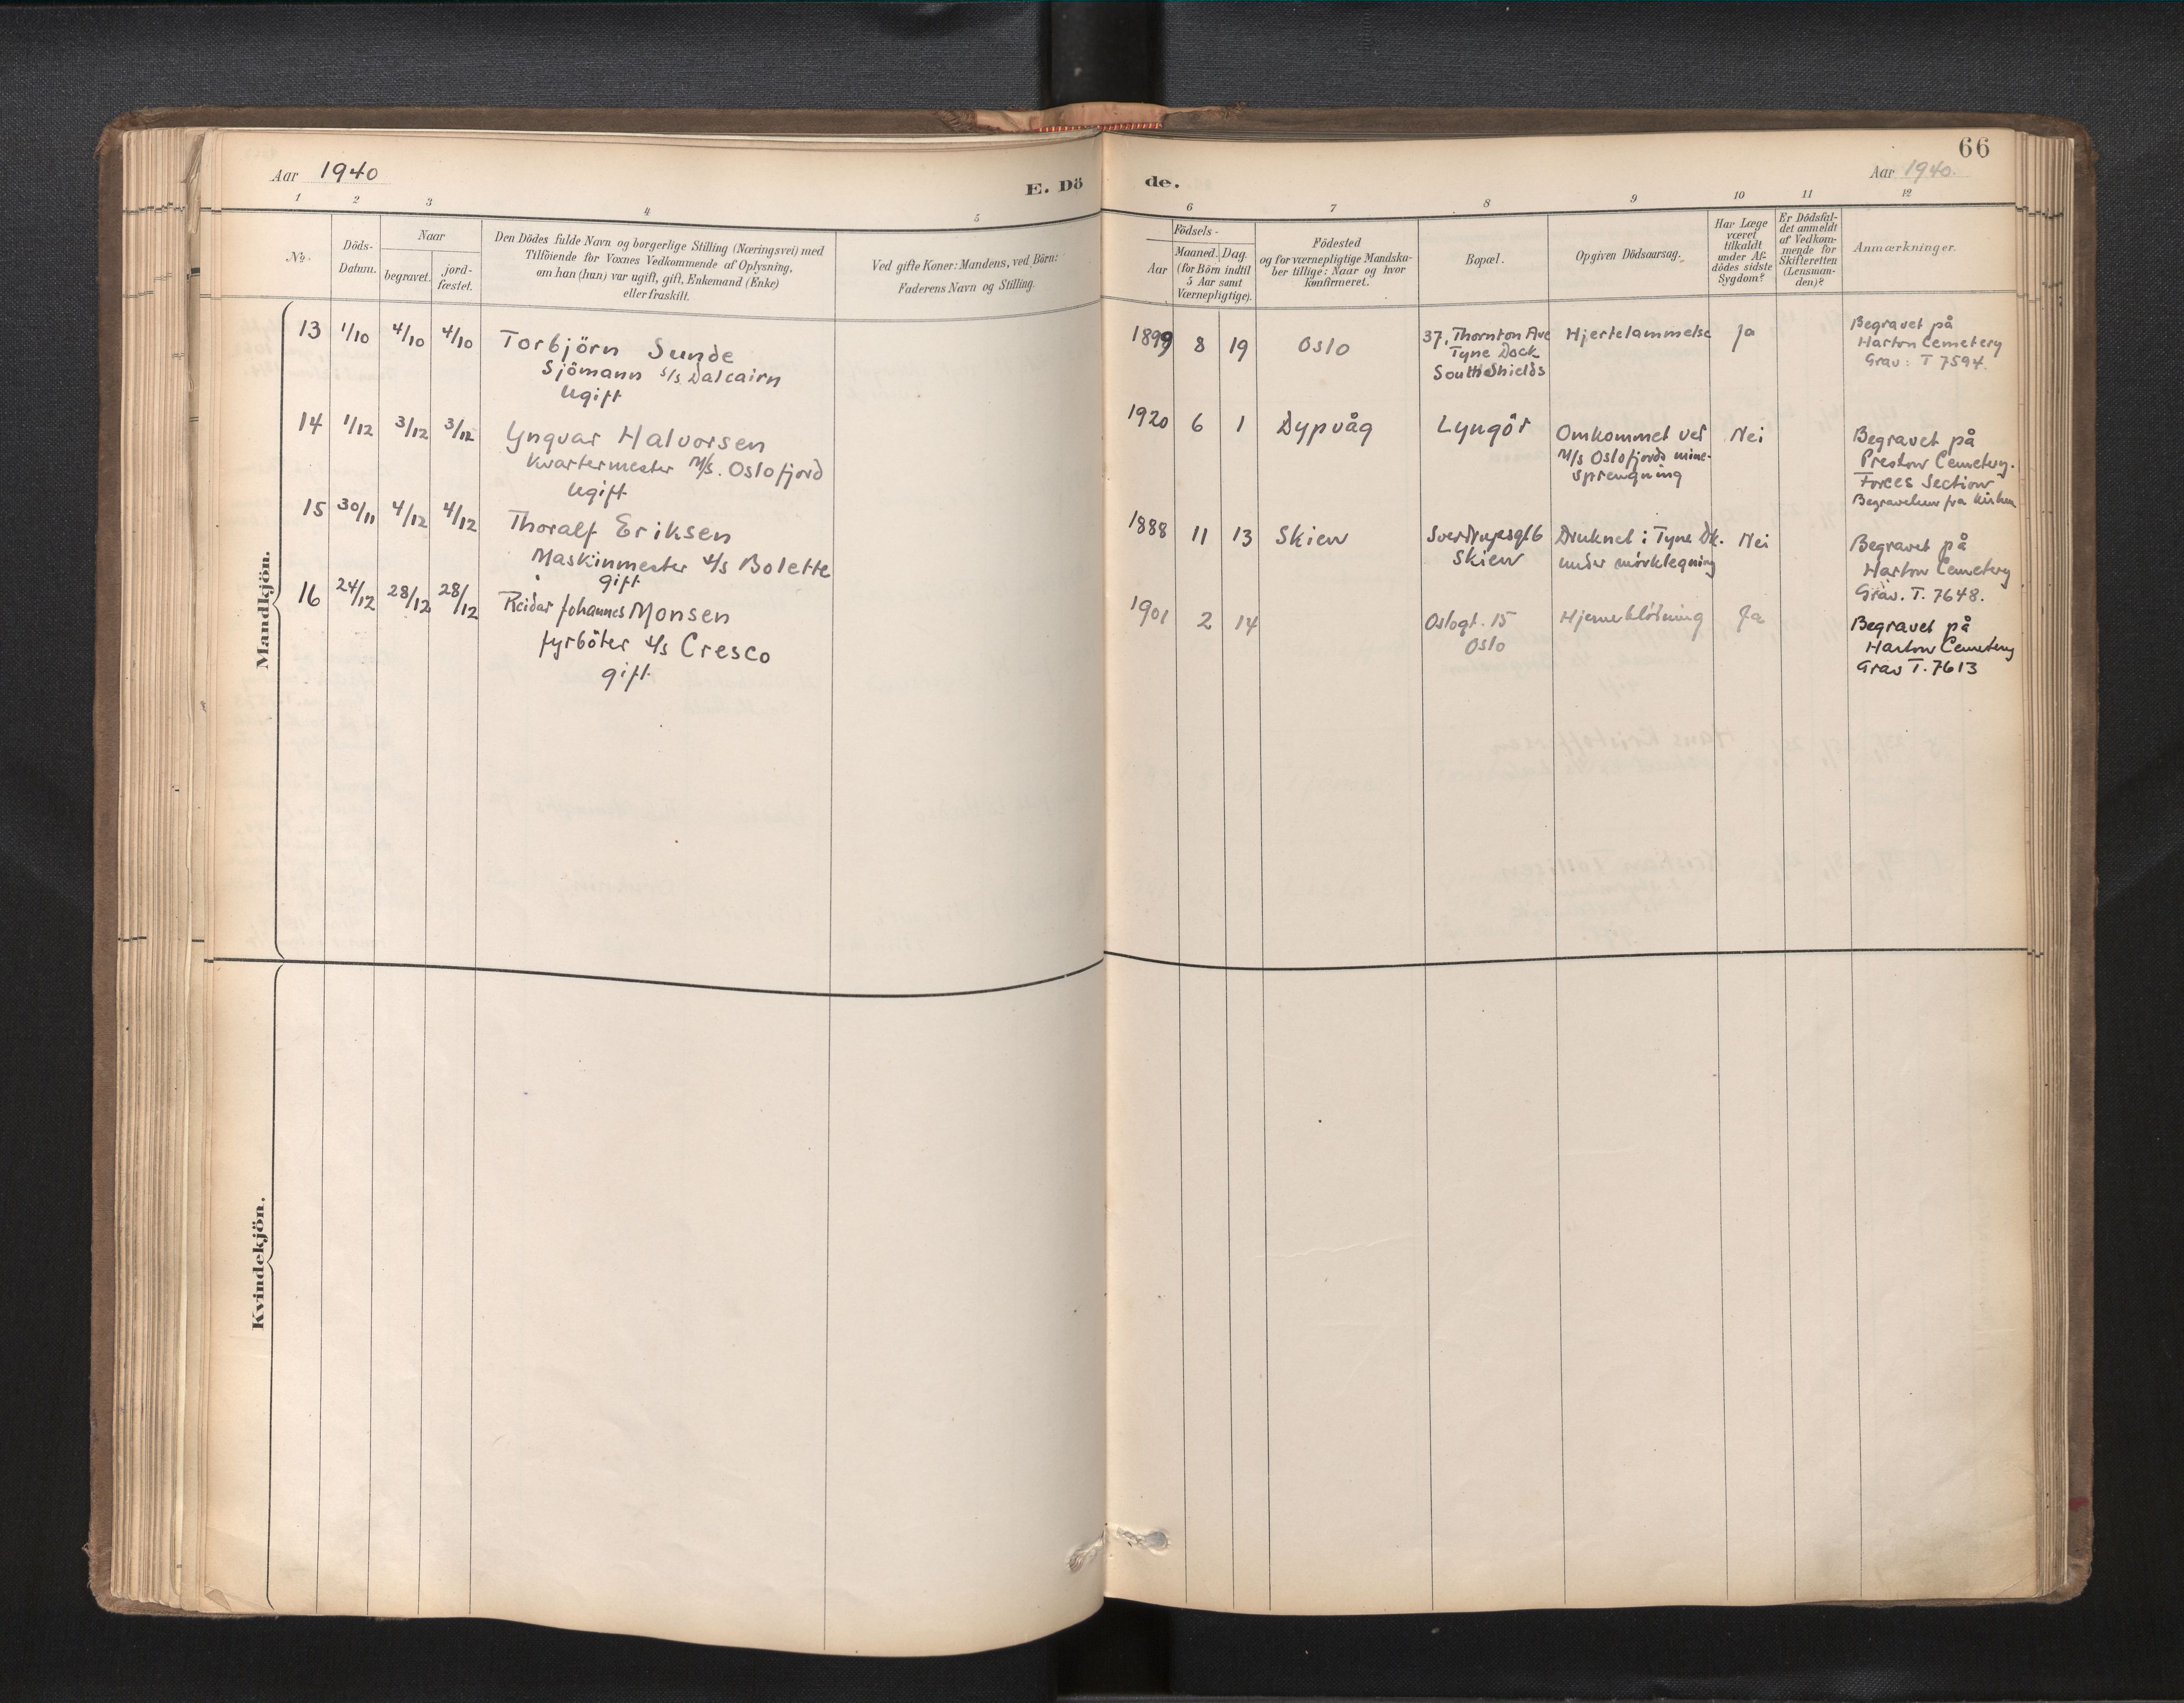 66
Aar 1940
E. Dö
de.
Aar 1940.
1 2 3 4 5
6 7 8 9 10 11 12
No.
Döds-
Datum.
Naar
begravet.
jord-
fæstet.
Den Dödes fulde Navn og borgerlige Stilling (Næringsvei) med
Tilföiende for Voxnes Vedkommende af Oplysning,
om han (hun) var ugift, gift, Enkemand (Enke)
eller fraskilt.
Ved gifte Koner: Mandens, ved Börn:
Faderens Navn og Stilling.
Födsels-
Aar
Maaned. Dag.
(for Börn indtil
5 Aar samt
Værnepligtige).
Födested
og for værnepligtige Mandska-
ber tillige: Naar og hvor
konfirmeret.
Bopæl.
Opgiven Dödsaarsag.
Har Læge
været
tilkaldt
under Af-
dödes sidste
Sygdom?
Er Dödsfal-
det anmeldt
af Vedkom-
mende for
Skifteretten
(Lensman-
den)?
Anmærkninger.
Mandkjön.
13 1/10 4/10 4/10 Torbjörn Sunde
Sjömann s/s Dalcairn
Ugift
1899 8 19 Oslo
37, Thornton Ave
Tyne Dock
South Shields
Hjertelammelse
Ja
Begravet på
Harton Cemetery
Grav: T 7594.
14 1/12 3/12 3/12 Yngvar Halvorsen
Kvartermester M/S. Oslofjord
Ugift
1920 6 1 Dypvåg
Lyngör
Omkommet ved
M/s Oslofjords mine-
sprengning
Nei
Begravet på
Preston Cemetery.
Forces Section
Begravelsen fra kirken
15 30/11 4/12 4/12 Thoralf Eriksen
Maskinmester s/s Bolette
gift
1888 11 13 Skien
Sverdrupsgt 6
Skien
Druknet i Tyne Dk.
under mörklegning
Nei
Begravet på
Harton Cemetery
Grav. T. 7648.
16 24/12 28/12 28/12 Reidar Johannes Monsen
fyrböter s/s Cresco
gift
1901 2 14
Oslogt. 15
Oslo
Hjerneblödning
Ja
Begravet på
Harton Cemetery
Grav T. 7613
Kvindekjön.